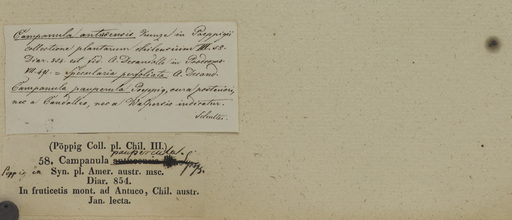 Campanula antucensis, Kunze in Poeppigii
collectione plantarum chilensium III. 58.
Diar. 854. est fid. A. Decandolle in Prodromo
VII. 491. = Specularia perfoliata A. Decand.
Campanula pauperula Poeppig, cura posteriori,
nec a Candolleo, nec a Walpersio indicatur.
(Pöppig Coll. pl. Chil. III.)
58. Campanula
Pöppig in Syn. pl. Amer. austr. msc.
Diar. 854.
In fruticetis mont. ad Antuco, Chil. austr.
Jan. lecta.